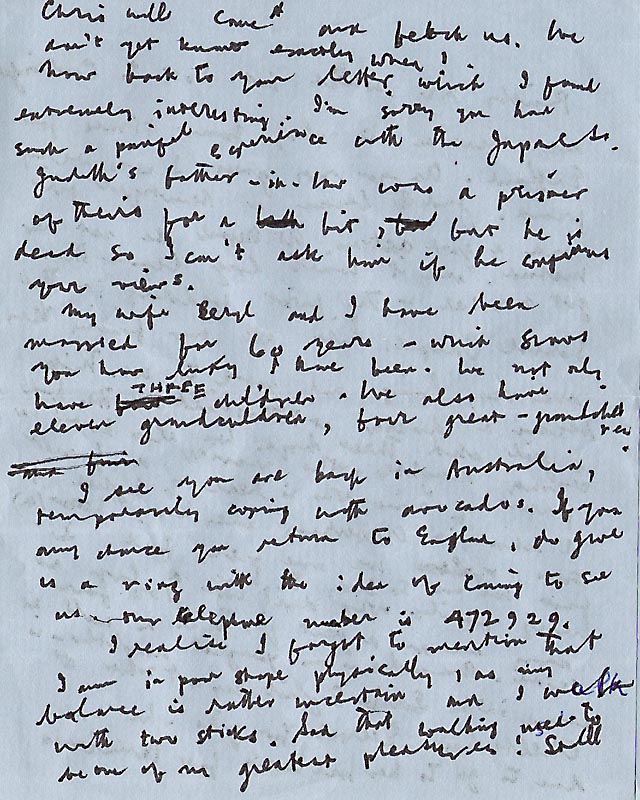 Chris will come and fetch us. We
don't yet know exactly when!
Now back to your letter which I found
extremely interesting. I'm sorry you had
such a painful experience with the Japanese.
Judith's father-in-law was a prisoner
of theirs for a bit, but he is
dead so I can't ask him if he confirms
your views.
My wife Beryl and I have been
married for 60 years - which shows
you how lucky I have been. We not only
have THREE children. We also have
eleven grandchildren, four great-grandchildren.
I see you are back in Australia,
temporarily coping with avocados. If by
any chance you return to England, do give
us a ring with the idea of coming to see
us - our telephone number is 472929.
I realise I forgot to mention that
I am in poor shape physically, as my
balance is rather uncertain and I walk
with two sticks. Sad that walking used to
be one of my greatest pleasures! Still